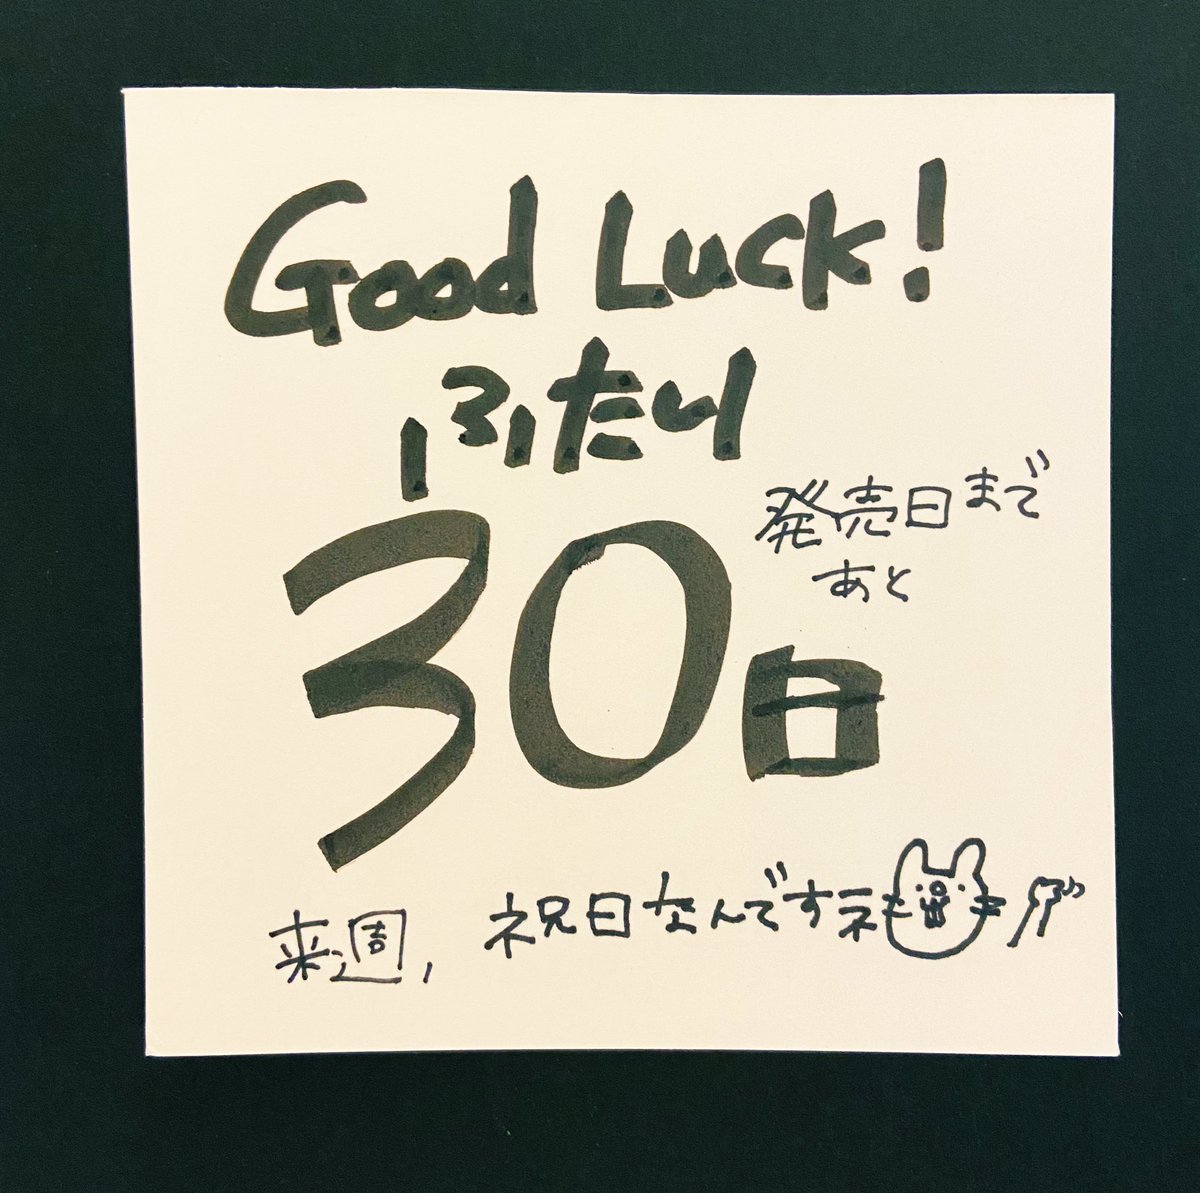 Good Luck!
ふたり
発売日まで
あと
30日
来週, 祝日なんですネ